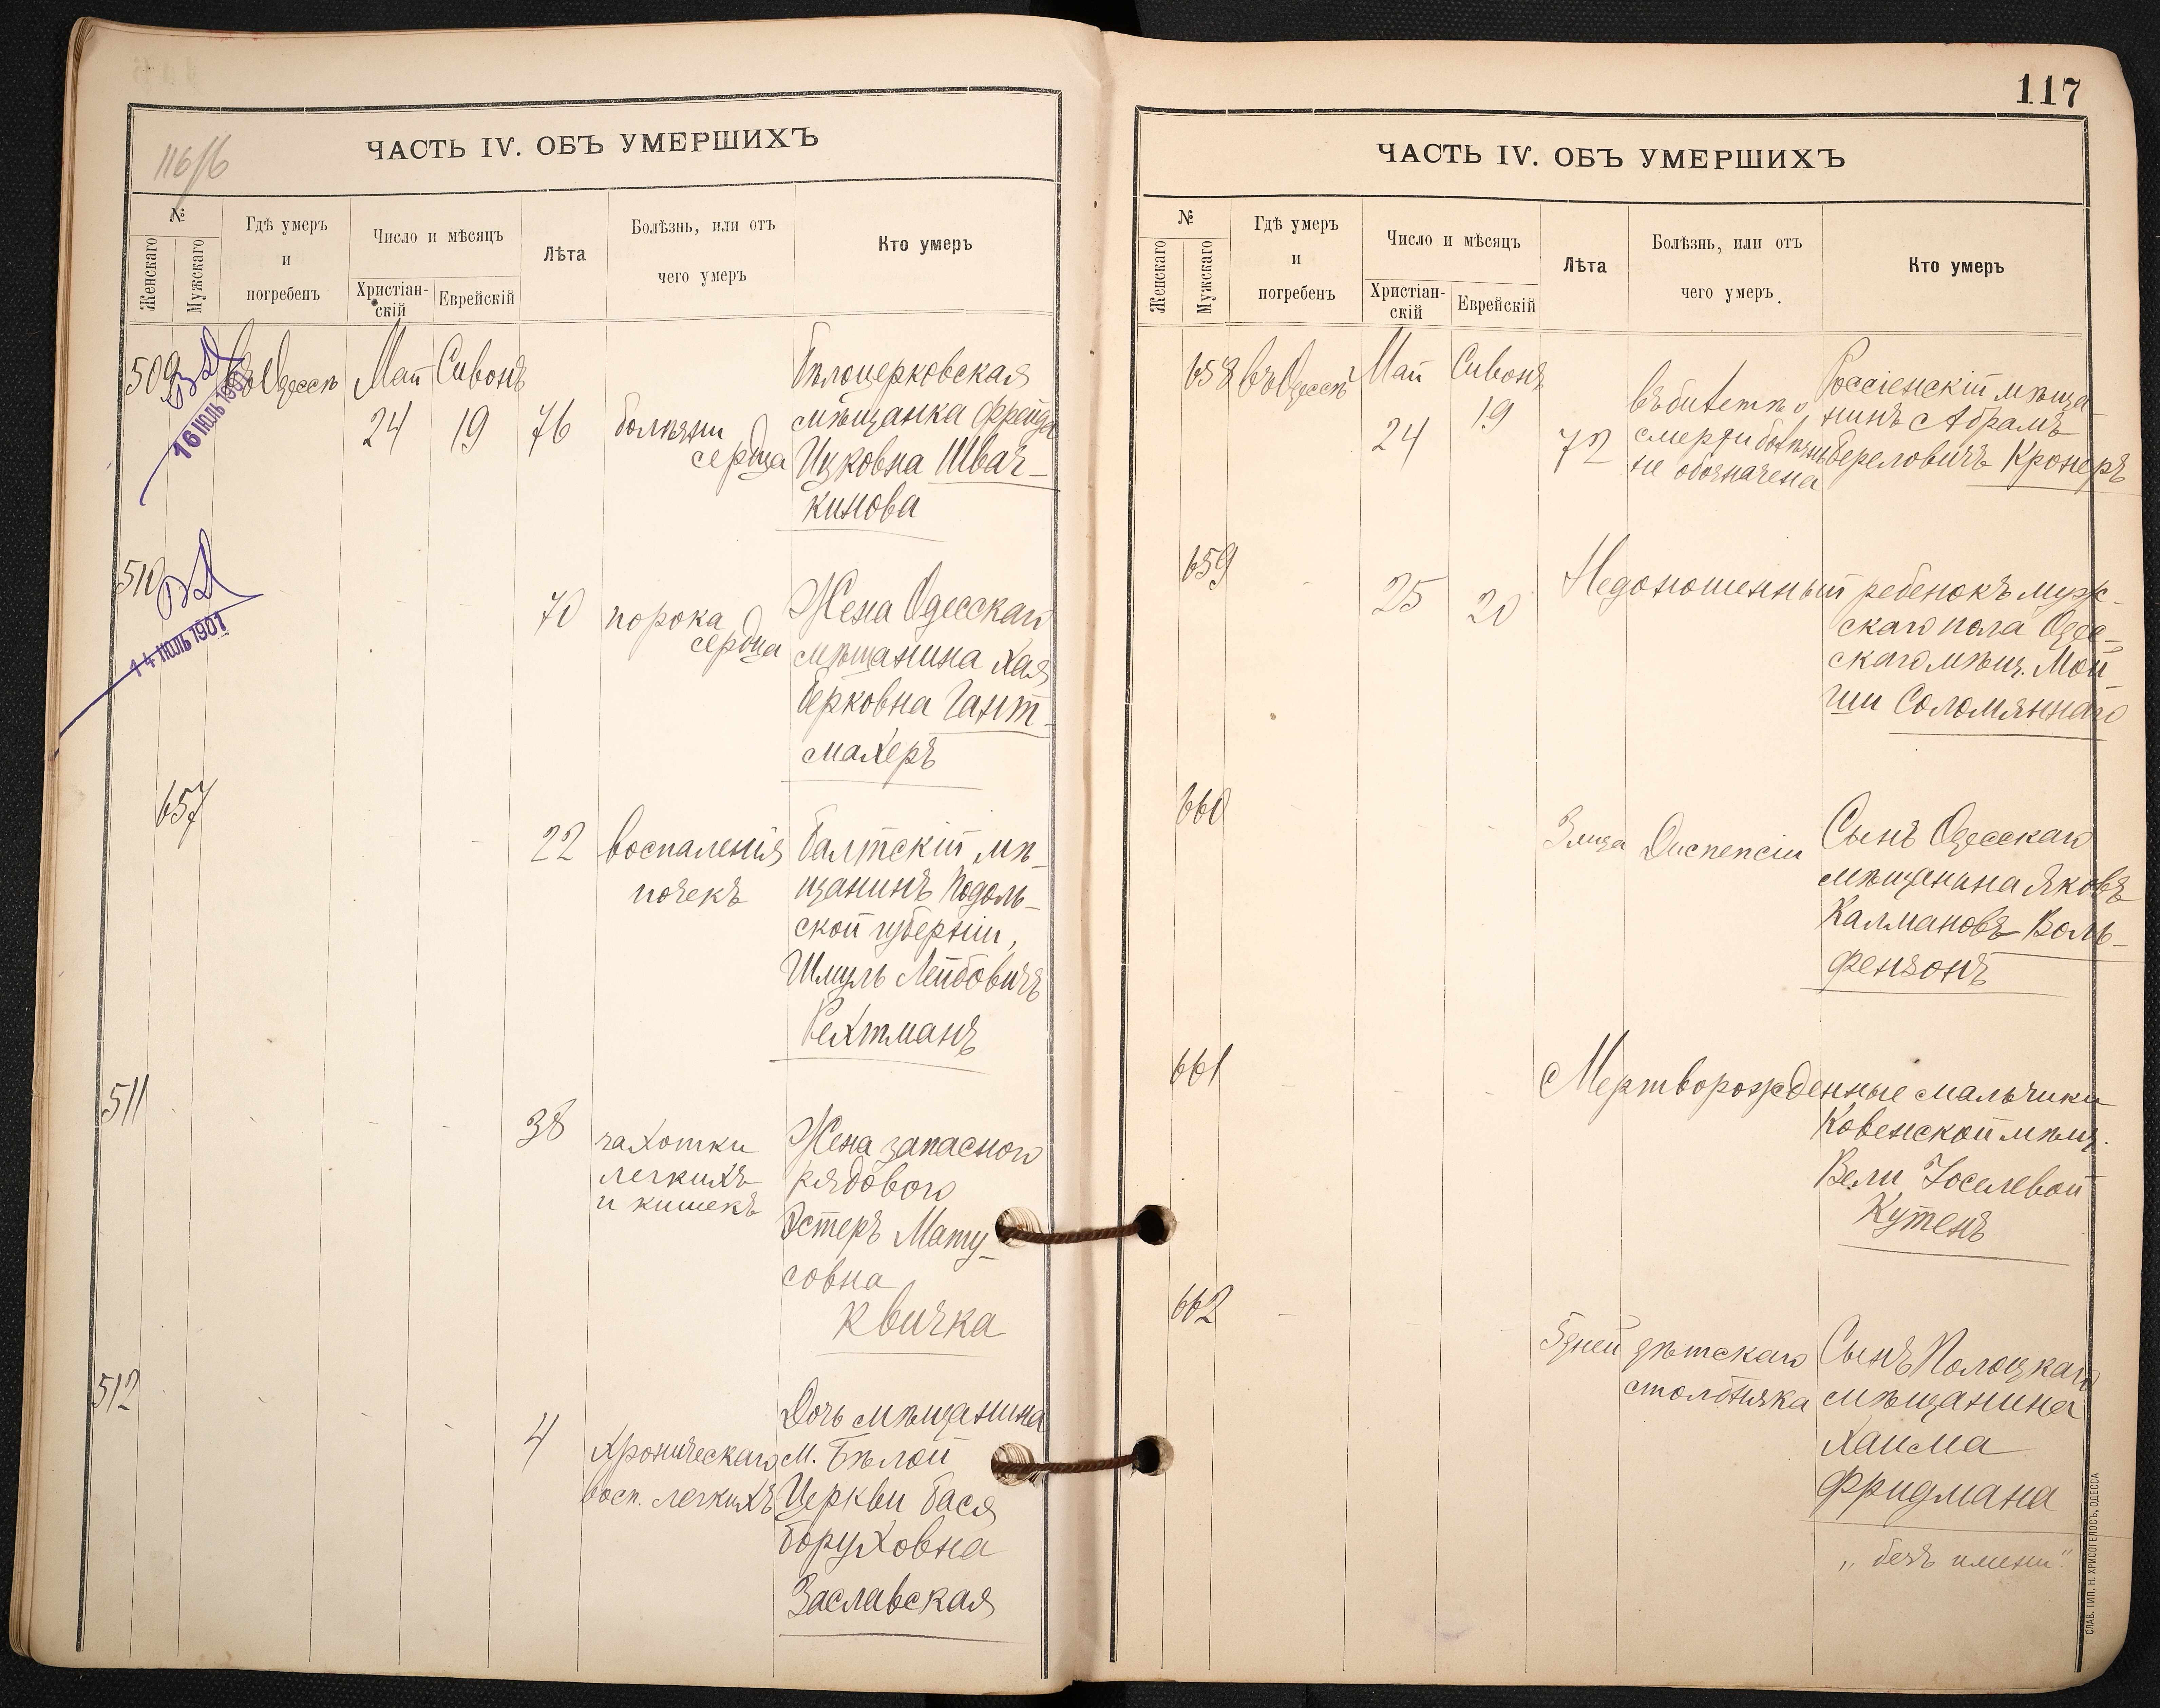 116/6
ЧАСТЬ IV. ОБЪ УМЕРШИХЪ
№
Женскаго
Мужскаго
Гдѣ умеръ
и
погребенъ
Число и мѣсяцъ
Христіан-
скій
Еврейскій
Лѣта
Болѣзнь, или отъ
чего умеръ
Кто умеръ
509
16 ІЮЛЬ 1901
въ Одессѣ
Май
24
Сивонъ
19
76
болѣзни
сердца
Бѣлоцерковская
мѣщанка Фрейда
Ицковна Швач-
кинова
510
14 ІЮЛЬ 1901
70
порока
сердца
Жена Одесскаго
мѣщанина Хая
Берковна Гант-
махеръ
657
22
воспаленія
почекъ
Балтскій мѣ-
щанинъ Подоль-
ской губерніи,
Шмуль Лейбовичъ
Рехтманъ
511
38
чахотки
легкихъ
и кишекъ
Жена запаснаго
рядового
Эстеръ Мату-
совна
Квичка
512
4
Хроническаго
восп. легкихъ
Дочь мѣщанина
м. Бѣлой
Церкви Бася
Боруховна
Заславская
117
ЧАСТЬ IV. ОБЪ УМЕРШИХЪ
№
Женскаго
Мужскаго
Гдѣ умеръ
и
погребенъ
Число и мѣсяцъ
Христіан-
скій
Еврейскій
Лѣта
Болѣзнь, или отъ
чего умеръ.
Кто умеръ
658
въ Одессѣ
Май
24
Сивонъ
19
72
въ билетѣ о
смерти болѣзнь
не обозначена
Россіенскій мѣща-
нинъ Абрамъ
Береловичъ Кронеръ
659
25
20
Недоношенный ребенокъ муж-
скаго пола Одес-
скаго мѣщ. Мой-
ши Соломяннаго
660
3 мѣсяца
Диспепсіи
Сынъ Одесскаго
мѣщанина Яковъ
Калмановъ Воль-
фензонъ
661
Мертворожденные мальчики
Ковенской мѣщ.
Вели Іоселевой
Кутенъ
662
5 дней
дѣтскаго
столбняка
Сынъ Полоцкаго
мѣщанина
Хаима
Фридмана
„безъ имени"
СЛАВ. ТИП. Н. ХРИСОГЕЛОСЪ, ОДЕССА